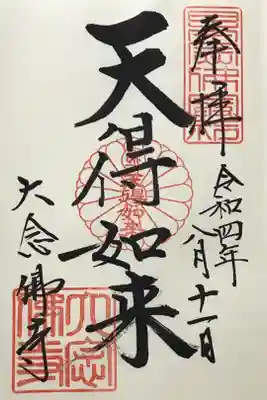 奉拝
令和四年
八月十一日
天得如来
大念佛寺
大念
佛寺